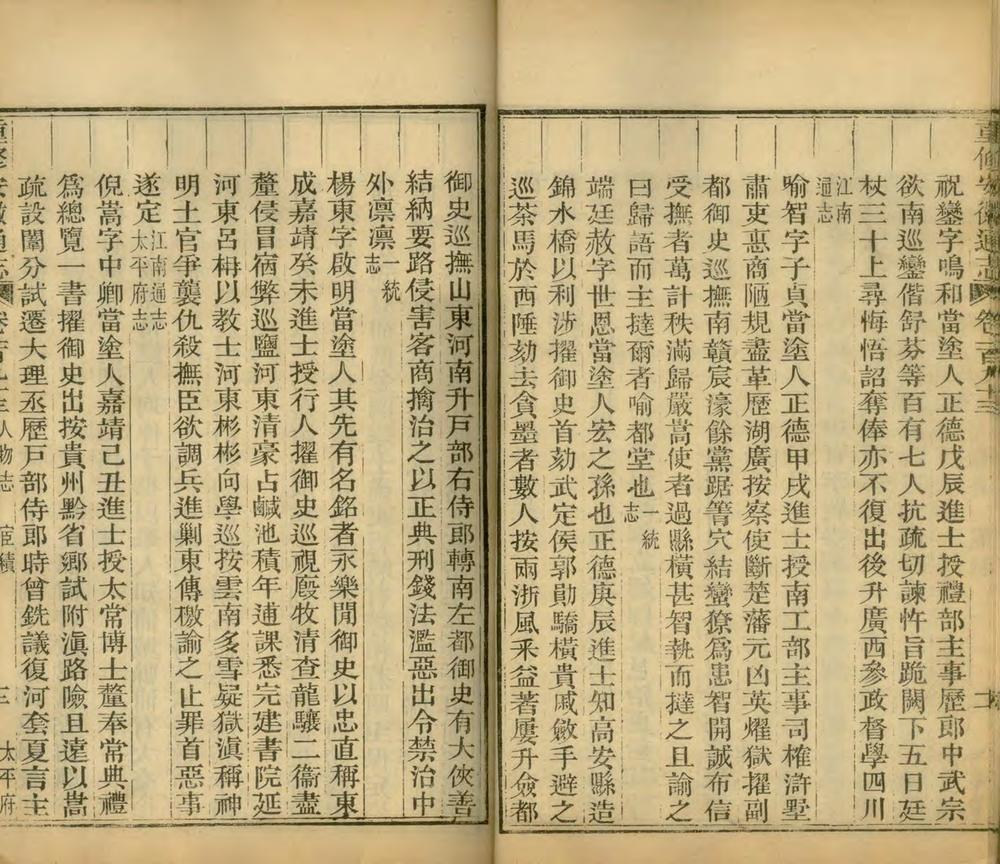 重修安徽通志 卷一百八十三 二
祝鑾字鳴和當塗人正德戊辰進士授禮部主事歷郎中武宗
欲南巡鑾偕舒芬等百有七人抗疏切諫忤旨跪闕下五日廷
杖三十上尋悔悟詔奪俸亦不復出後升廣西參政督學四川
江南
通志
喻智字子貞當塗人正德甲戌進士授南工部主事司榷滸墅
肅吏惠商陋規盡革歷湖廣按察使斷楚藩元凶英燿獄擢副
都御史巡撫南贛宸濠餘黨踞箐穴結蠻獠為患智開誠布信
受撫者萬計秩滿歸嚴嵩使者過縣橫甚智執而撻之且諭之
曰歸語而主撻爾者喻都堂也一統
志
端廷赦字世恩當塗人宏之孫也正德庚辰進士知高安縣造
錦水橋以利涉擢御史首劾武定侯郭勛驕橫貴戚斂手避之
巡茶馬於西陲劾去貪墨者數人按兩浙風釆益著屢升僉都
御史巡撫山東河南升戶部右侍郎轉南左都御史有大俠善
結納要路侵害客商擒治之以正典刑錢法濫惡出令禁治中
外凛凛一統
志
楊東字啟明當塗人其先有名銘者永樂閒御史以忠直稱東
成嘉靖癸未進士授行人擢御史巡視廄牧清查龍驤二衞盡
釐侵冒宿弊巡鹽河東清豪占鹹池積年逋課悉完建書院延
河東呂柟以教士河東彬彬向學巡按雲南多雪疑獄滇稱神
明土官爭襲仇殺撫臣欲調兵進剿東傳檄諭之止罪首惡事
遂定江南通志
太平府志
倪嵩字中卿當塗人嘉靖己丑進士授太常博士釐奉常典禮
為總覽一書擢御史出按貴州黔省鄉試附滇路險且遠以嵩
疏設闈分試遷大理丞歷戶部侍郎時曾銑議復河套夏言主
重修安徽通志 卷一百九十三 人物志 宦績 三 太平府